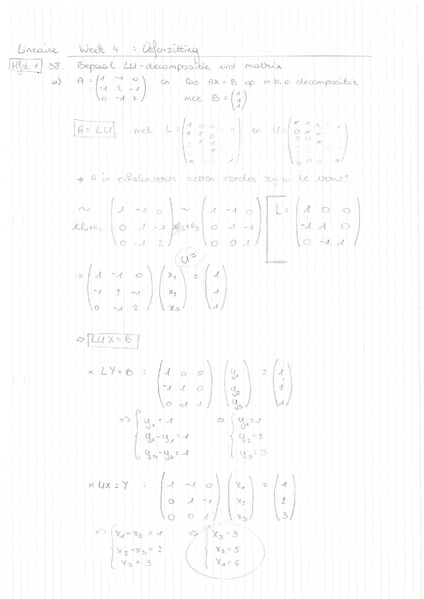 Lineaire Week 4 : Oefenzitting
Hfst 1 38. Bepaal LU-decompositie vd matrix
a) A = (1 -1 0; -1 2 -1; 0 -1 2) en los AX = B op m.b.v. decompositie
met B = (1; 1; 1)
A = LU met L = en U =
→ A in echelonvorm zetten zonder rijen te
~ (1 -1 0; 0 1 -1; 0 -1 2) ~ (1 -1 0; 0 1 -1; 0 0 1) L = (1 0 0; -1 1 0; 0 -1 1)
U =
→ (1 -1 0; -1 2 -1; 0 -1 2) (x1; x2; x3) = (1; 1; 1)
⇒ LUX = B
* LY = B : (1 0 0; -1 1 0; 0 -1 1) (y1; y2; y3) = (1; 1; 1)
⇒ { y1 = 1 ⇒ { y1 = 1
y2 = 2
y3 - y2 = 1 y3 = 3
* UX = Y : (1 -1 0; 0 1 -1; 0 0 1) (x1; x2; x3) = (1; 2; 3)
⇒ { x1 - x2 = 1 ⇒ { x3 = 3
x2 - x3 = 2 x2 = 5
x3 = 3 x1 = 6